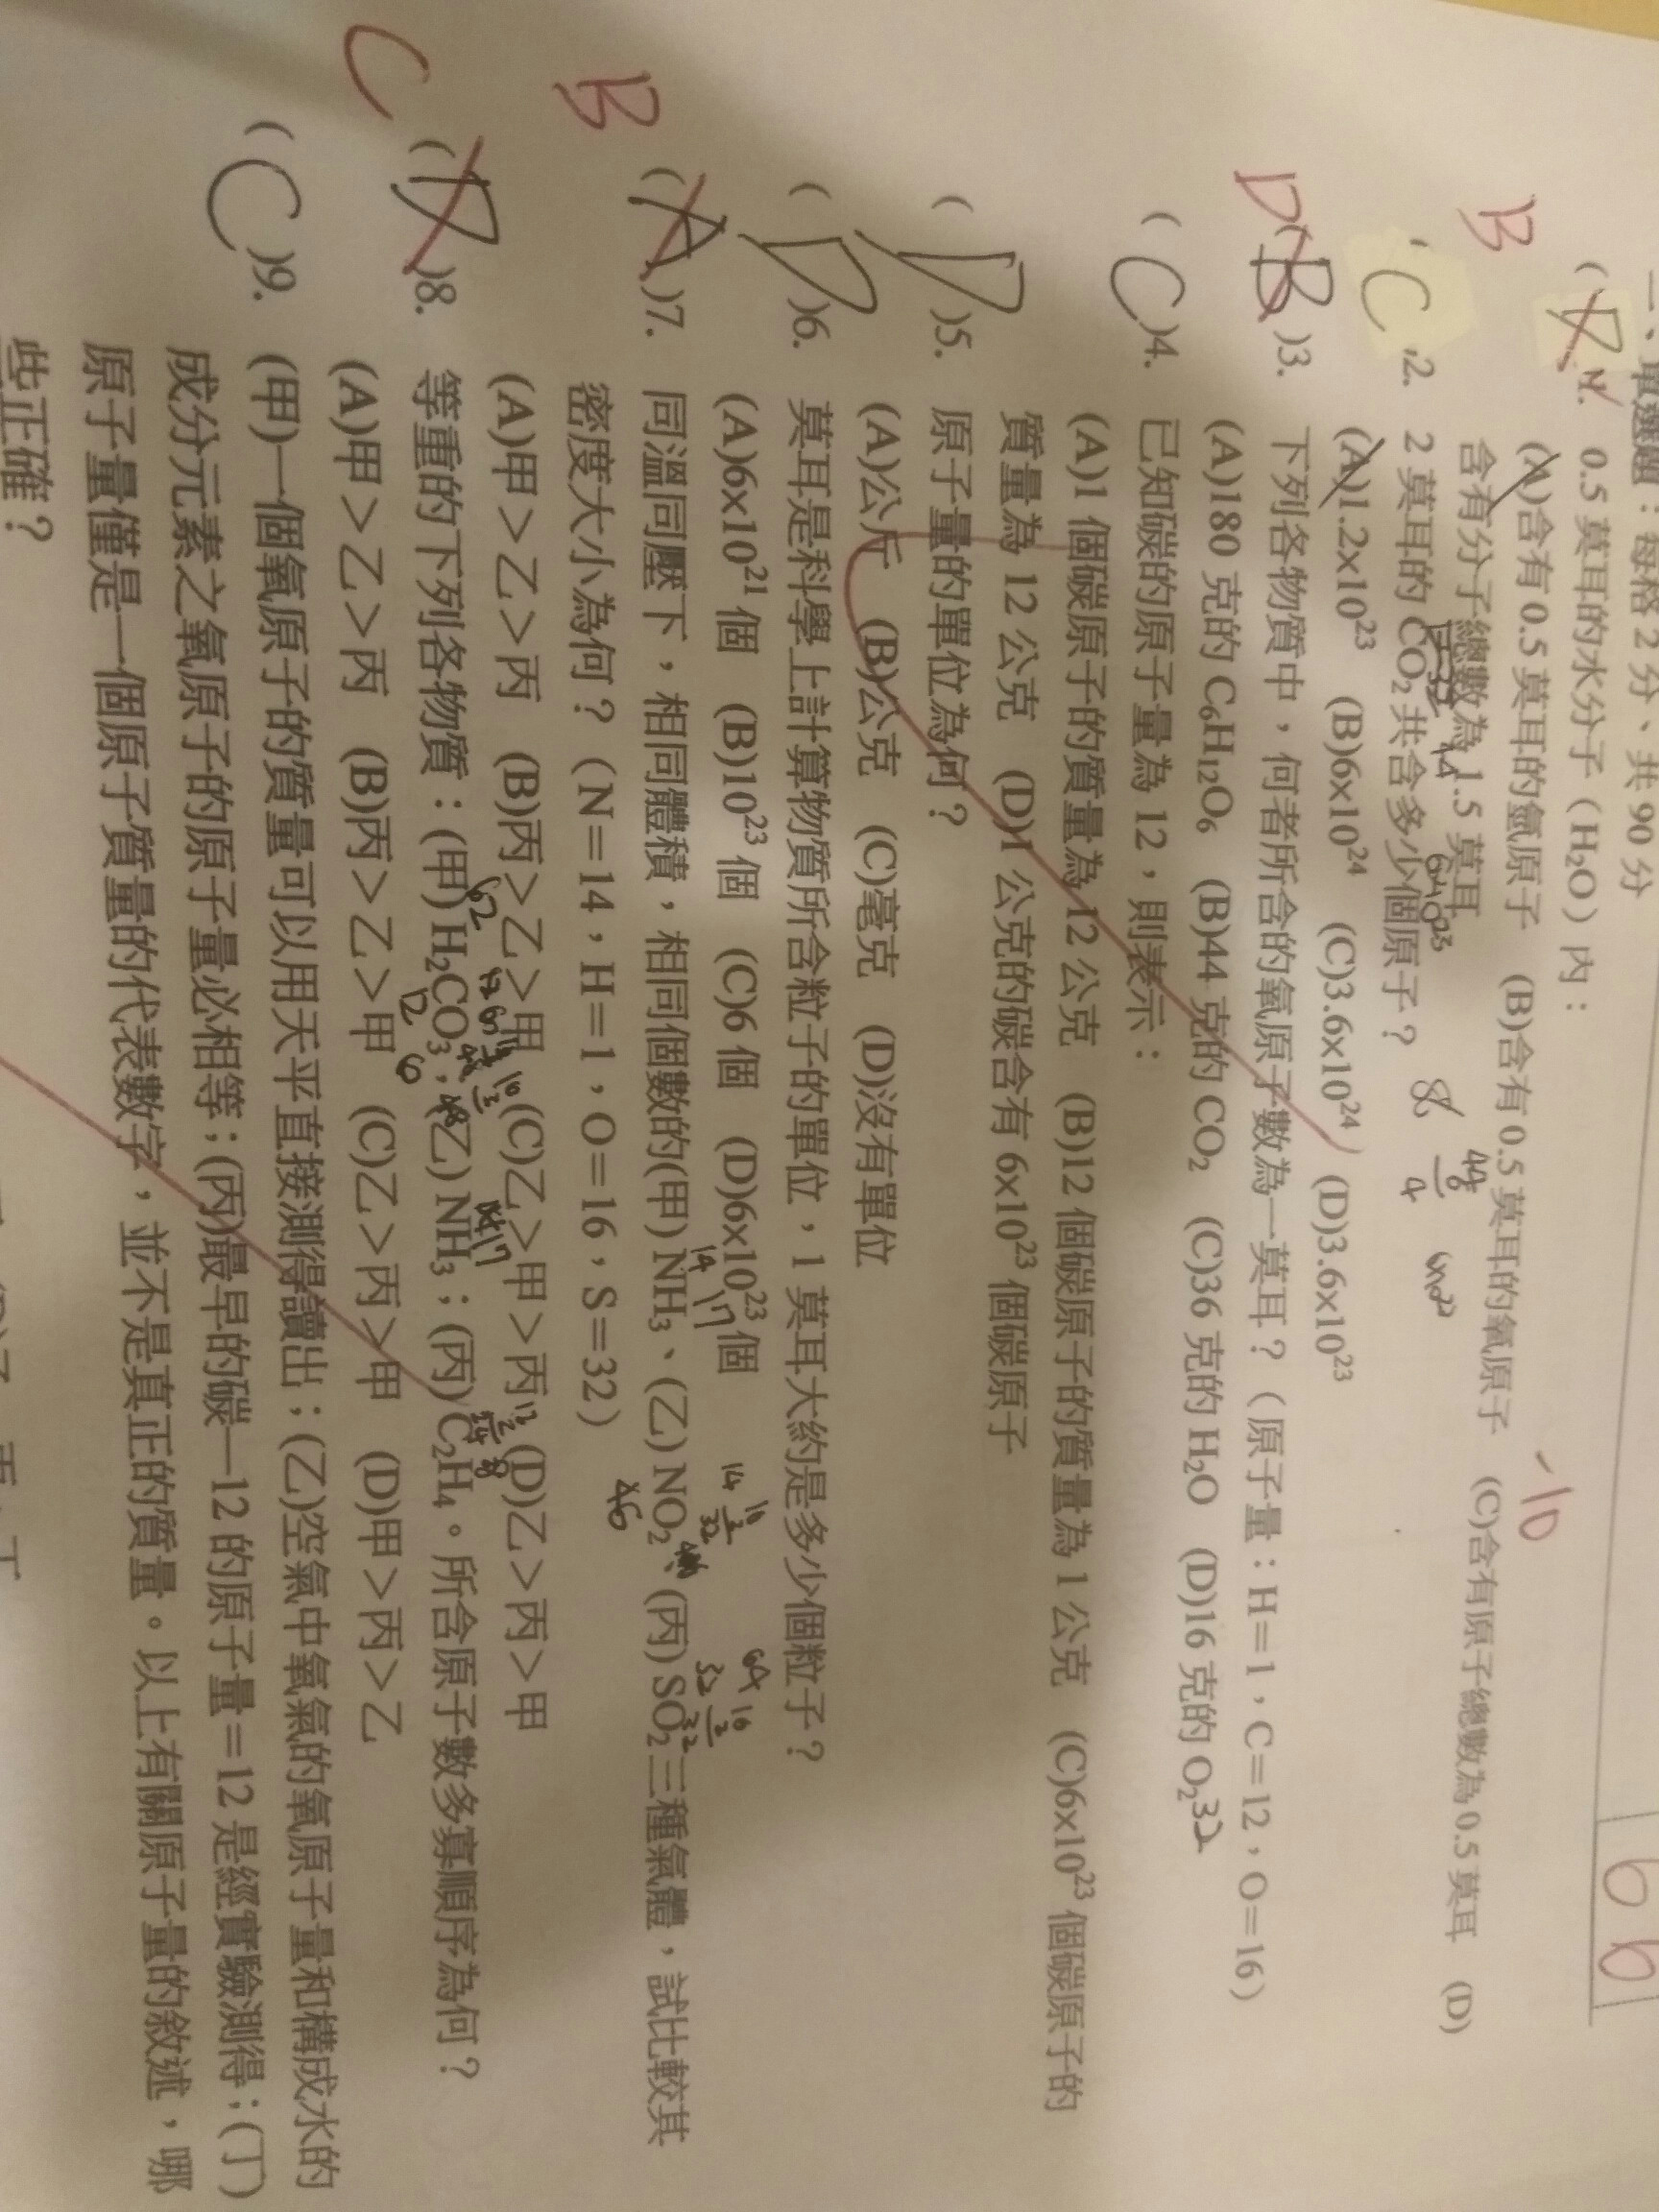 一、單選題：每格 2 分、共 90 分
66
-10
B
( D )1. 0.5 莫耳的水分子（H₂O）內：
(A)含有 0.5 莫耳的氫原子 (B)含有 0.5 莫耳的氧原子 (C)含有原子總數為 0.5 莫耳 (D)
含有分子總數為 1.5 莫耳
C )2. 2 莫耳的 CO₂ 共含多少個原子？
(A)1.2x10²³ (B)6x10²⁴ (C)3.6x10²⁴ (D)3.6x10²³
D
( B )3. 下列各物質中，何者所含的氧原子數為一莫耳？（原子量：H＝1，C＝12，O＝16）
(A)180 克的 C₆H₁₂O₆ (B)44 克的 CO₂ (C)36 克的 H₂O (D)16 克的 O₂ 32
( C )4. 已知碳的原子量為 12，則表示：
(A)1 個碳原子的質量為 12 公克 (B)12 個碳原子的質量為 1 公克 (C)6x10²³ 個碳原子的
質量為 12 公克 (D)1 公克的碳含有 6x10²³ 個碳原子
( D )5. 原子量的單位為何？
(A)公斤 (B)公克 (C)毫克 (D)沒有單位
( D )6. 莫耳是科學上計算物質所含粒子的單位，1 莫耳大約是多少個粒子？
(A)6x10²¹ 個 (B)10²³ 個 (C)6 個 (D)6x10²³ 個
B
( A )7. 同溫同壓下，相同體積，相同個數的(甲) NH₃、(乙) NO₂、(丙) SO₂ 三種氣體，試比較其
密度大小為何？（N＝14，H＝1，O＝16，S＝32）
(A)甲＞乙＞丙 (B)丙＞乙＞甲 (C)乙＞甲＞丙 (D)乙＞丙＞甲
C
( D )8. 等重的下列各物質：(甲) H₂CO₃；(乙) NH₃；(丙) C₂H₄。所含原子數多寡順序為何？
(A)甲＞乙＞丙 (B)丙＞乙＞甲 (C)乙＞丙＞甲 (D)甲＞丙＞乙
( C )9. (甲)一個氧原子的質量可以用天平直接測得讀出；(乙)空氣中氧氣的氧原子量和構成水的
成分元素之氧原子的原子量必相等；(丙)最早的碳—12 的原子量＝12 是經實驗測得；(丁)
原子量僅是一個原子質量的代表數字，並不是真正的質量。以上有關原子量的敘述，哪
些正確？